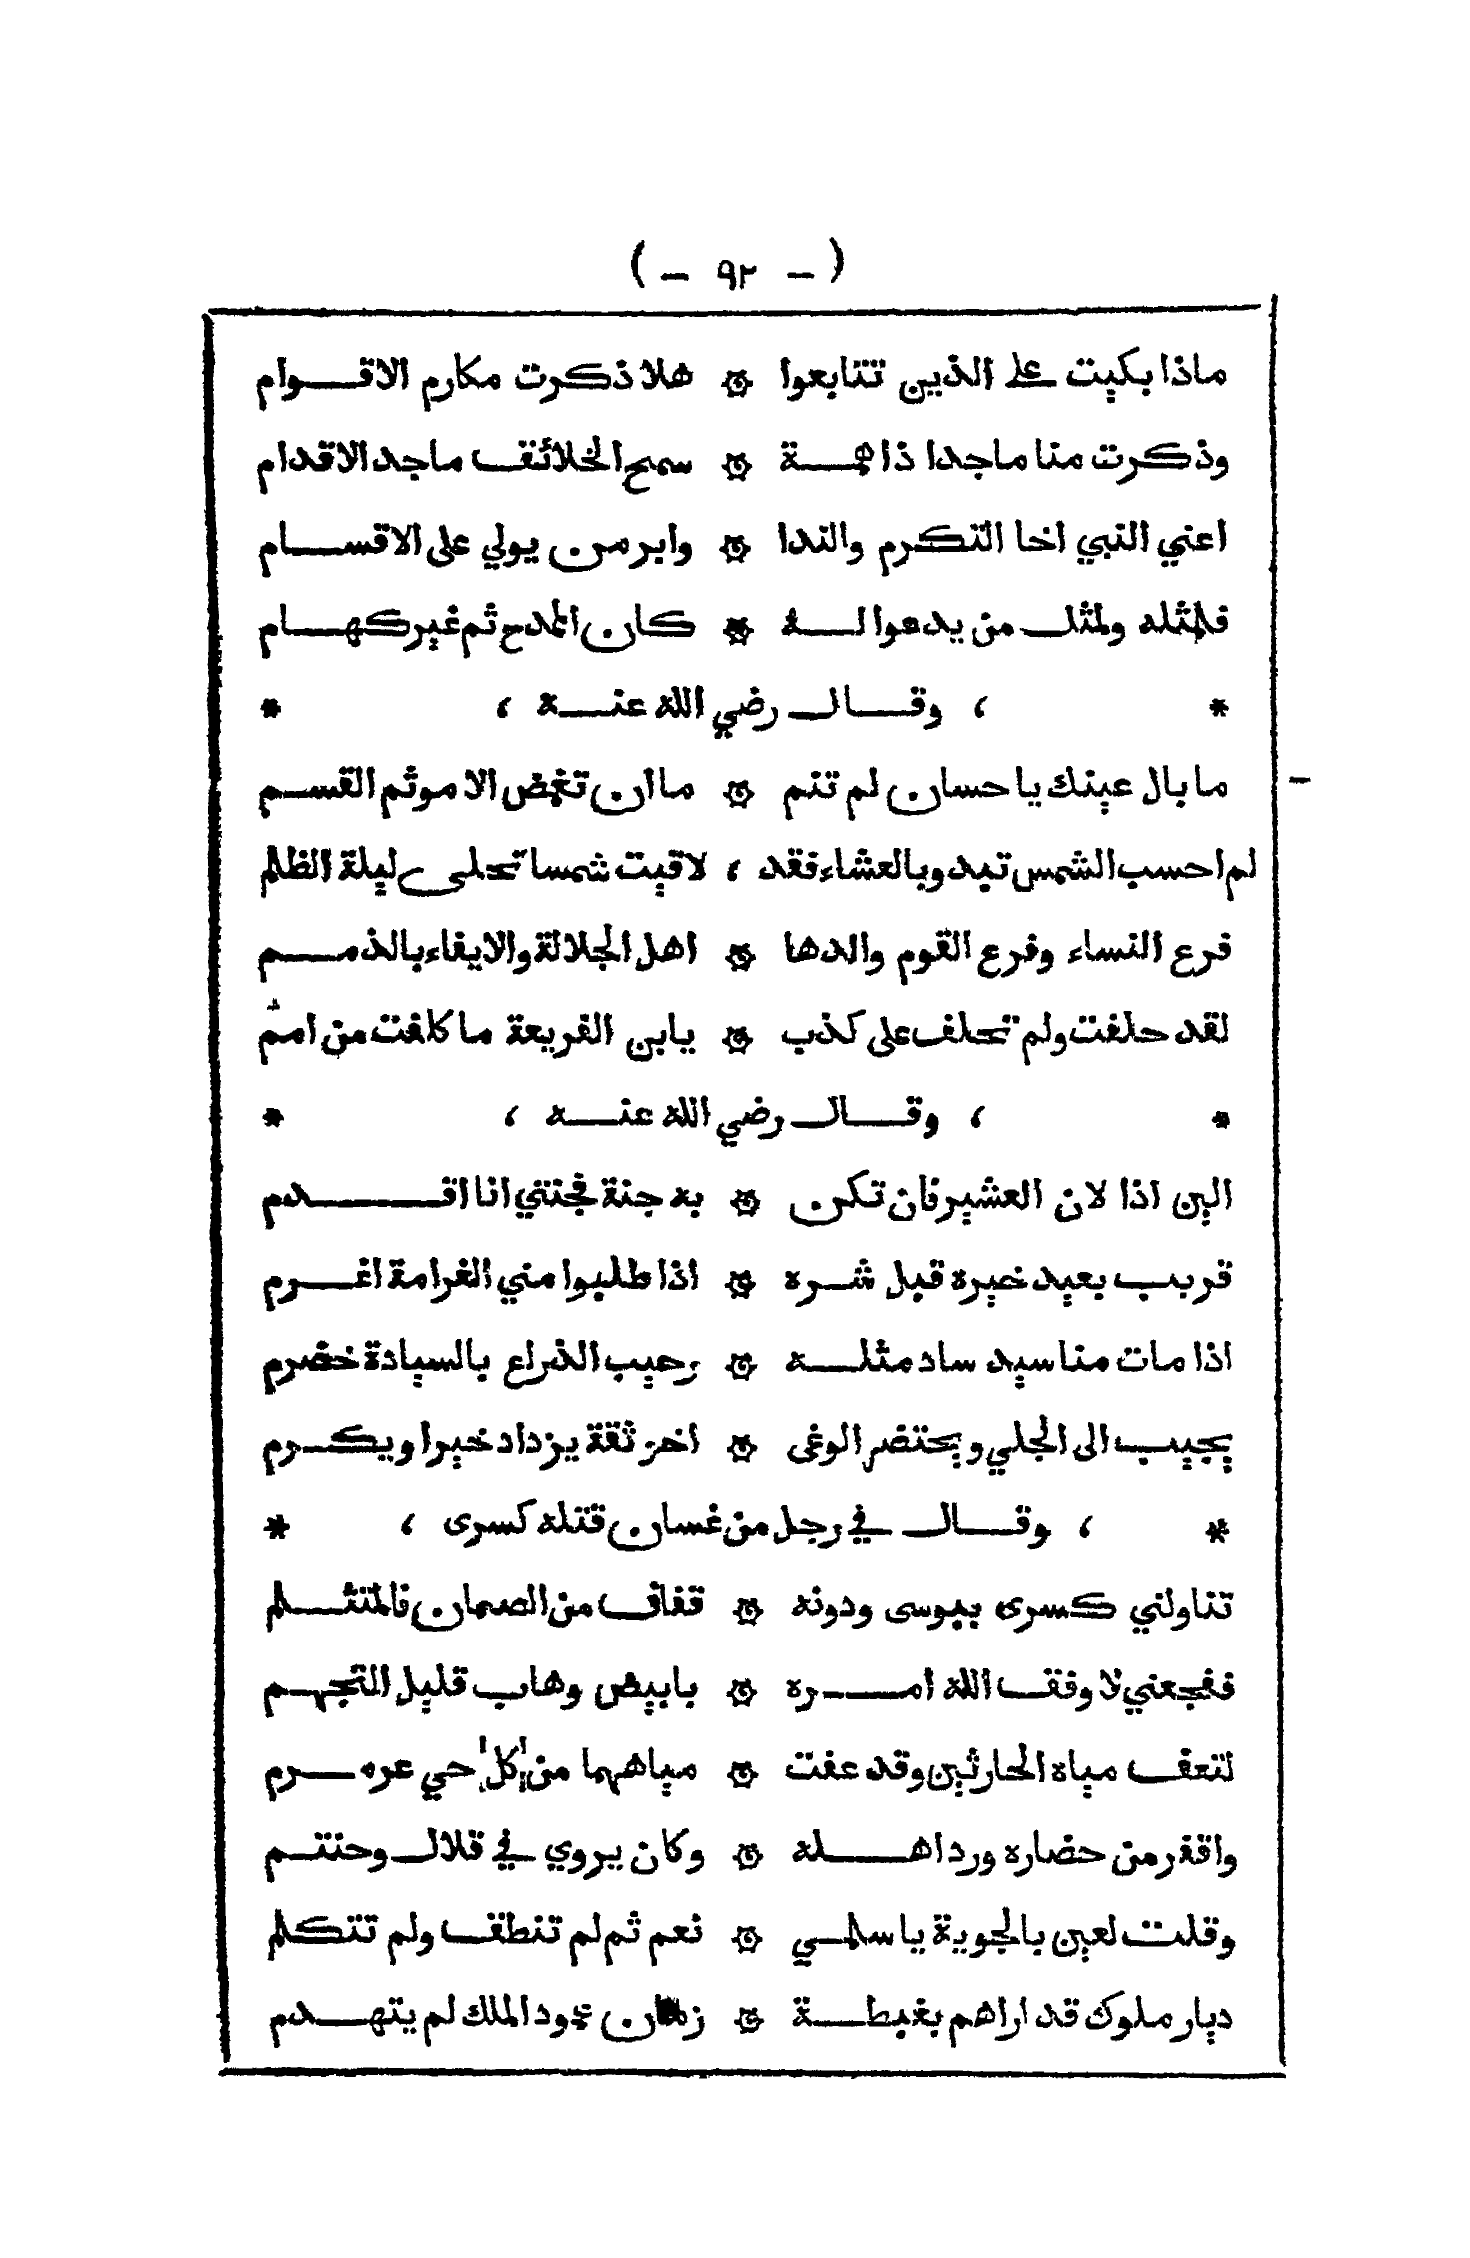 ( - ٩٢ - )
ماذا بكيت على الذين تتابعوا ۞ هلا ذكرت مكارم الاقوام
وذكرت منا ماجدا ذا همة ۞ سمح الخلائف ماجد الاقدام
اعني النبي اخا التكرم والندا ۞ وابر من يولي على الاقسام
فلمثله ولمثل من يدعوا له ۞ كان الممدح ثم غير كهام
* ، وقال رضي الله عنه ، *
ما بال عينك يا حسان لم تنم ۞ ما ان تغمض الا موثم القسم
لم احسب الشمس تبد وبالعشاء فقد ، لاقيت شمسا تجلى ليلة الظلم
فرع النساء وفرع القوم والدها ۞ اهل الجلالة والايفاء بالذمم
لقد حلفت ولم تحلف على كذب ۞ يابن الفريعة ما كلفت من امم
* ، وقال رضي الله عنه ، *
الين اذا لان العشير فان تكن ۞ به جنة فجنتي انا اقدم
قريب بعيد خيره قبل شره ۞ اذا طلبوا مني الغرامة اغرم
اذا مات منا سيد ساد مثله ۞ رحيب الذراع بالسيادة خضرم
يجيب الى الجلي ويحتضر الوغى ۞ اخو ثقة يزداد خيرا ويكرم
* ، وقال في رجل من غسان قتله كسرى ، *
تناولني كسرى ببوسى ودونه ۞ قفاف من الصمان فالمتثلم
ففجعني لا وفق الله امره ۞ بابيض وهاب قليل التجهم
لتعف مياه الحارثين وقد عفت ۞ مياههما من كل حي عرمرم
واقفر من حضاره ورد اهله ۞ وكان يروي في قلال وحنتم
وقلت لعين بالجوية يا سلمي ۞ نعم ثم لم تنطق ولم تتكلم
ديار ملوك قد اراهم بغبطة ۞ زمان عمود الملك لم يتهدم